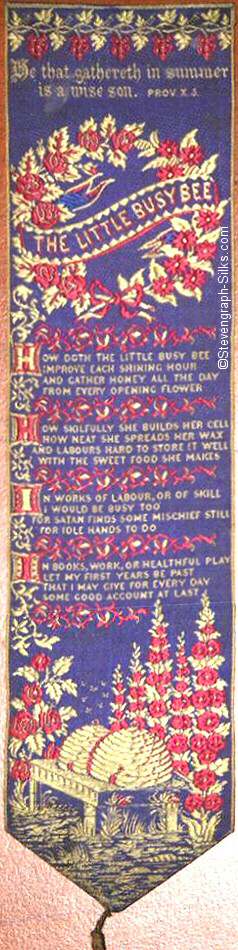 He that gathereth in summer
is a wise son. PROV X.5.
THE LITTLE BUSY BEE
HOW DOTH THE LITTLE BUSY BEE
IMPROVE EACH SHINING HOUR
AND GATHER HONEY ALL THE DAY
FROM EVERY OPENING FLOWER
HOW SKILFULLY SHE BUILDS HER CELL
HOW NEAT SHE SPREADS HER WAX
AND LABOURS HARD TO STORE IT WELL
WITH THE SWEET FOOD SHE MAKES
IN WORKS OF LABOUR, OR OF SKILL
I WOULD BE BUSY TOO
FOR SATAN FINDS SOME MISCHIEF STILL
FOR IDLE HANDS TO DO
IN BOOKS, WORK, OR HEALTHFUL PLAY
LET MY FIRST YEARS BE PAST
THAT I MAY GIVE FOR EVERY DAY
SOME GOOD ACCOUNT AT LAST
©Stevengraph-Silks.com